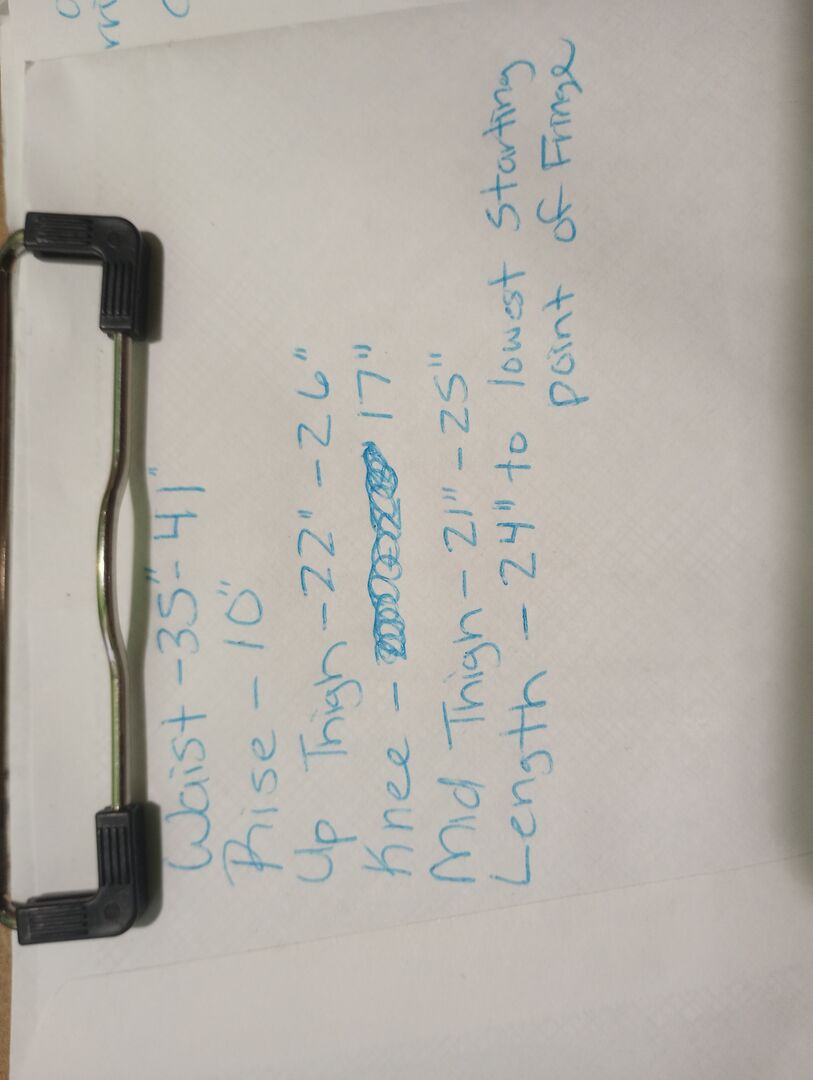 Waist - 35" - 41"
Rise - 10"
Up Thigh - 22" - 26"
Knee - 17"
Mid Thigh - 21" - 25"
Length - 24" to lowest starting
point of Fringe